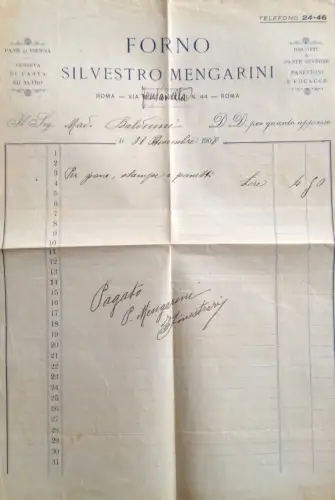 TELEFONO 24-46
FORNO
SILVESTRO MENGARINI
ROMA — VIA N. 44 — ROMA
PANE DI VIENNA
VENDITA
DI PASTA
ED ALTRO
BISCOTTI
PASTE
PANETTONI
E FOCACCE
Il Sig. Mad. D D, per quanto appresso
li 190
1
2
3
4 Per pane, stampe e panetti Lire 4 50
5
6
7
8
9
10
11
12
13
14
15
16
17
18
19
20
21
22
23
24
25
26
27
28
29
30
31
Pagato
P. Mengarini